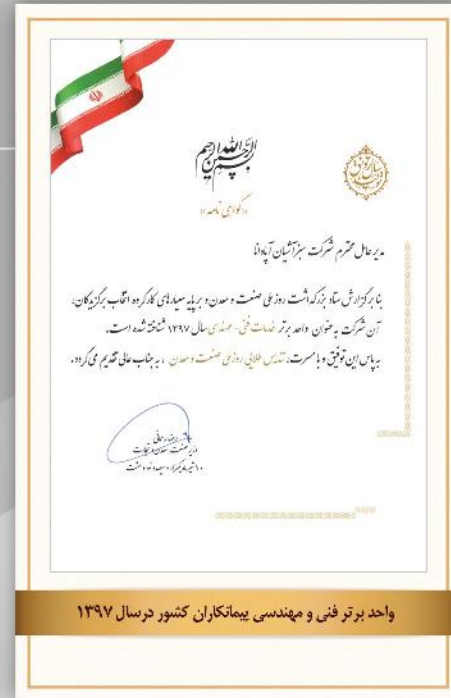 بسم الله الرحمن الرحیم
«گواهی نامه»
مدیر عامل محترم شرکت سبز آشیان آپادانا
بنا بر گزارش ستاد بزرگداشت روز ملی صنعت و معدن و بر پایه معیارهای کارگروه انتخاب برگزیدگان،
آن شرکت به عنوان واحد برتر خدمات فنی - مهندسی سال ۱۳۹۷ شناخته شده است.
به پاس این توفیق و با مسرت، تندیس طلایی روز ملی صنعت و معدن، به جناب عالی تقدیم می گردد.
رضا رحمانی
وزیر صنعت، معدن و تجارت
واحد برتر فنی و مهندسی پیمانکاران کشور درسال ۱۳۹۷